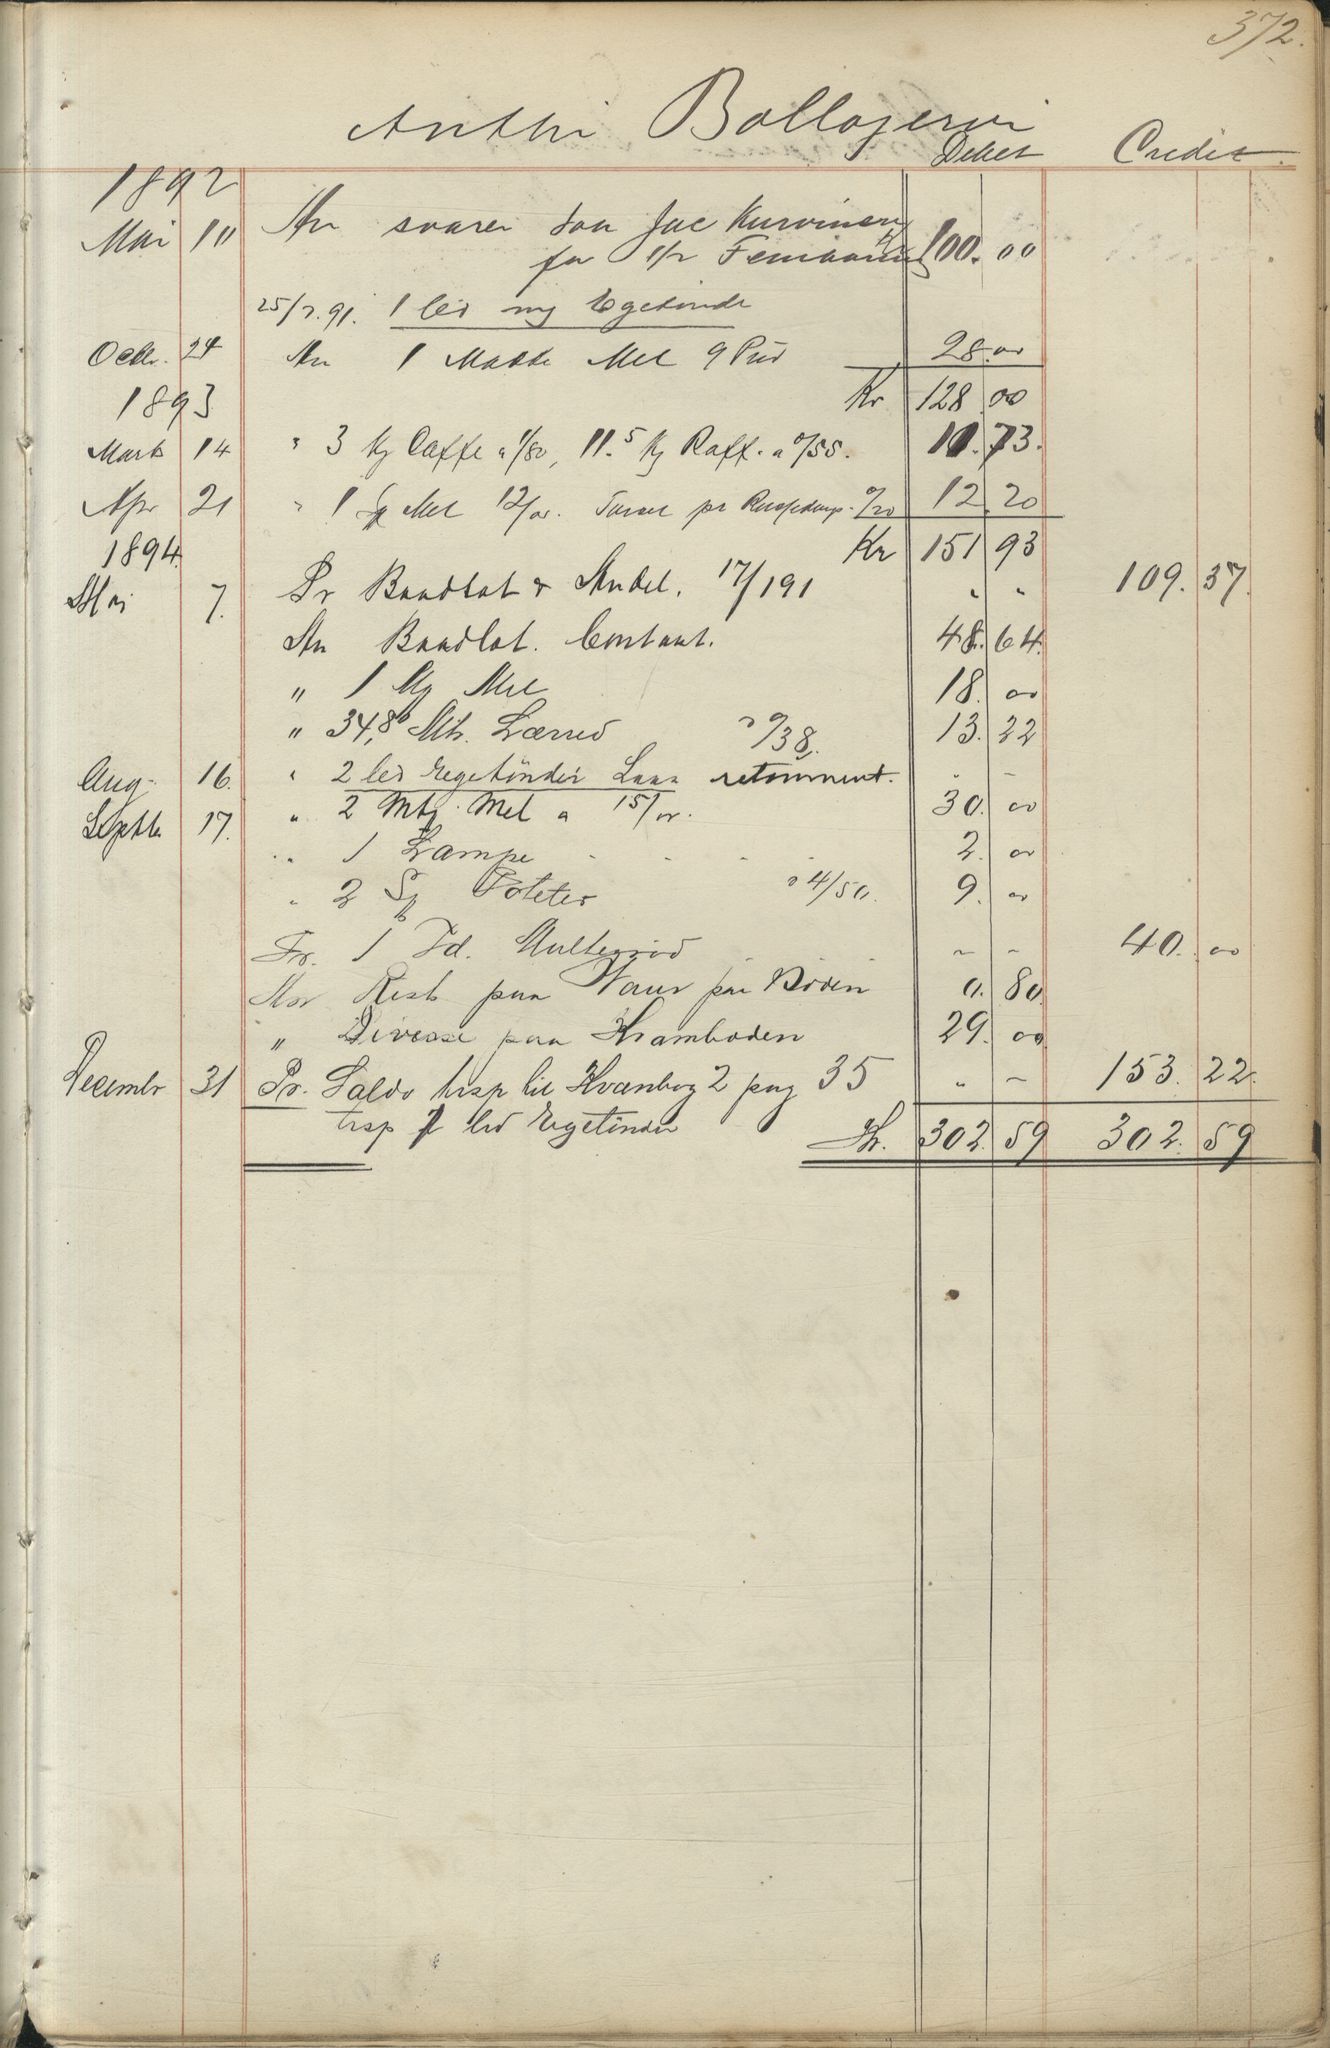 372.
Anthi Bollojervi
Debet Credit
1892
Mai 10 An svarer for Jac Kurvinen
for 1/2 Femböring 100.00
25/7.91. 1 led ny Egetönde
Octbr. 24 An 1 Matte Mel 9 Pud 28.00
1893 Kr 128.00
Marts 14 " 3 Kg Caffe a 1/80, 11.5 Kg Raff. a 0/55. 11.73.
Apr 21 " 1 Sk Mel 12/00. 0/20 12.20
1894. Kr 151 93
Mai 7. Pr Baadlot & Andel. 17/191 " " 109.37.
An Baadlot. Contant. 48.64.
" 1 Mg Mel 18.00
" 34,8 Mtr. Lærred a 0/38. 13.22
Aug. 16. " 2 led Egetönder Laan retourneret. - -
Septbr 17. " 2 Mtg. Mel a 15/00. 30.00
" 1 Lampe 2.00
" 2 Sk Poteter a 4/50. 9.00
Pr. 1 Td. Multegröd - - 40.00
An Rest paa Varer paa Boden 0.80.
" Diverse paa Kramboden 29.00
Decembr 31 Pr. Saldo trsp til Kvænbog 2 pag 35 " - 153.22.
trsp 1 led Egetönder Kr. 302.59 302.59